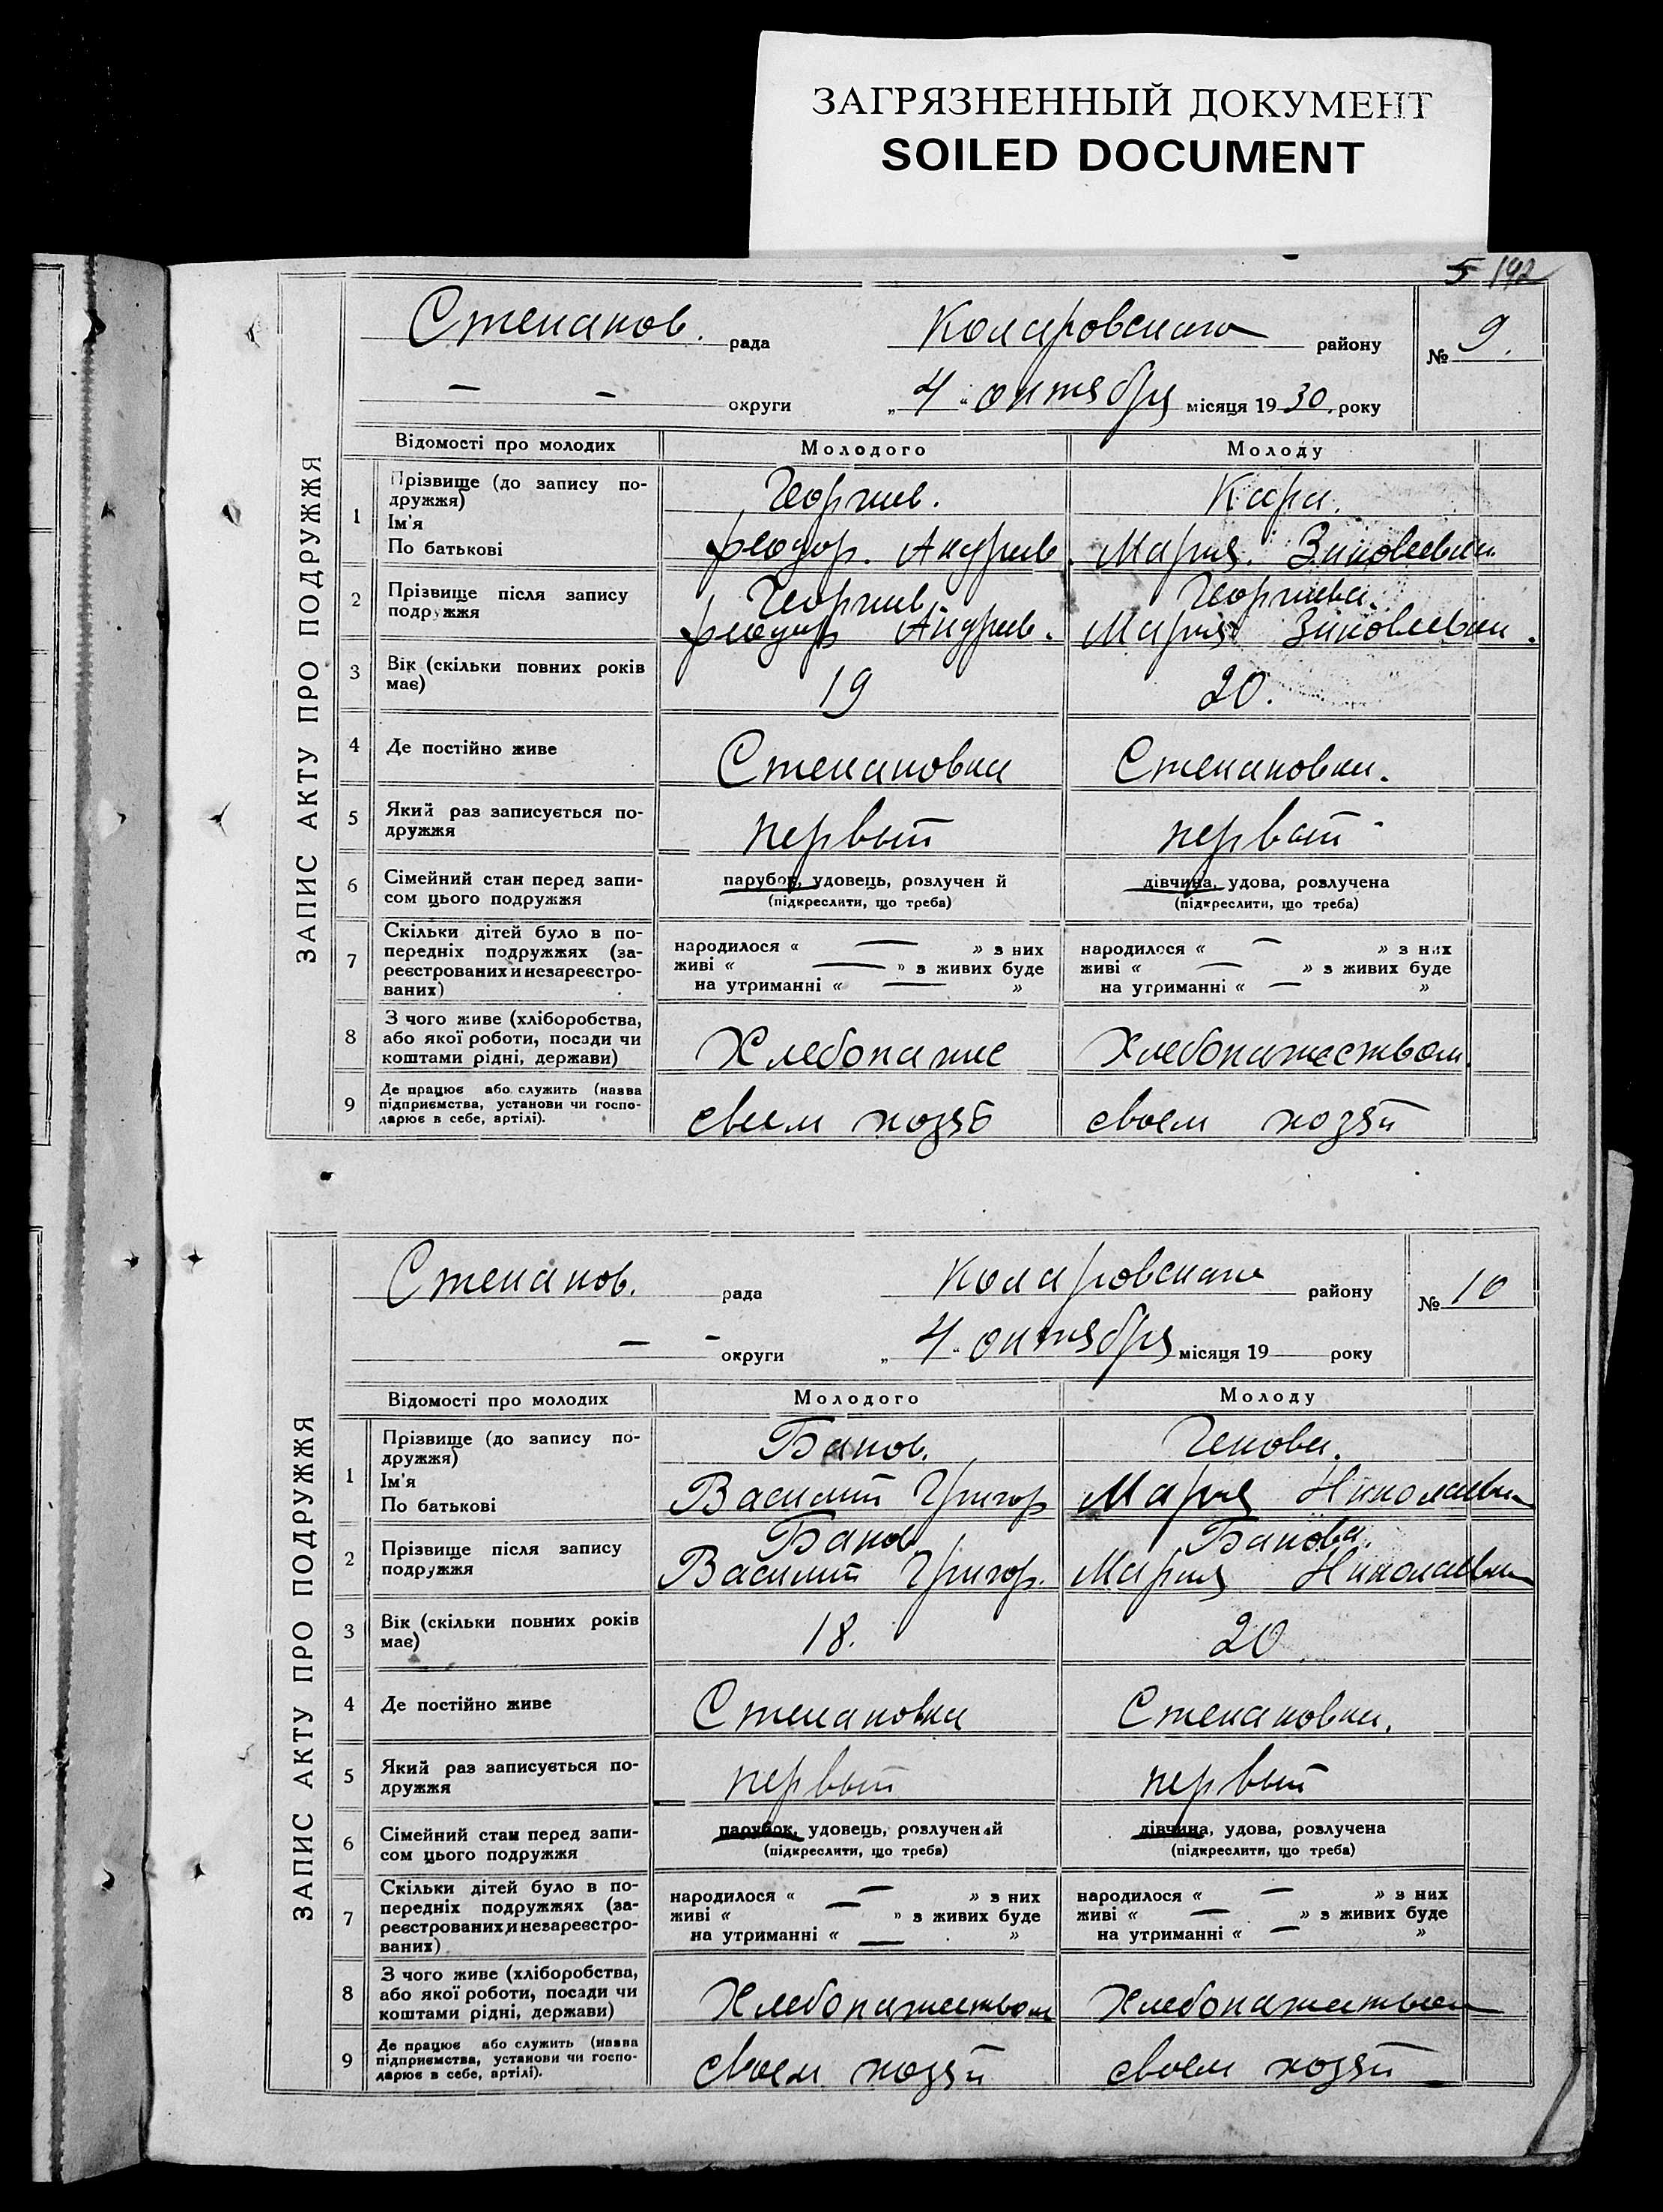 ЗАГРЯЗНЕННЫЙ ДОКУМЕНТ
SOILED DOCUMENT
5 192
ЗАПИС АКТУ ПРО ПОДРУЖЖЯ
Степанов. рада Коларовского району № 9.
— — округи „4“ октября місяця 1930. року
Відомості про молодих Молодого Молоду
1 Прізвище (до запису по-
дружжя) Георгиев. Кара.
Ім'я
По батькові Феодор. Андреев. Мария. Зиновиевна
2 Прізвище після запису Георгиев Георгиева.
подружжя Феодор Андреев. Мария Зиновиевна.
3 Вік (скільки повних років
має) 19 20.
4 Де постійно живе Степановка Степановка.
5 Який раз записується по-
дружжя первый первый
6 Сімейний стан перед запи- парубок, удовець, розлучен й дівчина, удова, розлучена
сом цього подружжя (підкреслити, що треба) (підкреслити, що треба)
7 Скільки дітей було в по-
передніх подружжях (за- народилося « — » з них народилося « — » з них
реєстрованих и незареєстро- живі « — » з живих буде живі « — » з живих буде
ваних) на утриманні « — » на утриманні « — »
8 З чого живе (хліборобства,
або якої роботи, посади чи
коштами рідні, держави) Хлебопашес Хлебопашеством.
9 Де працює або служить (назва
підприємства, установи чи госпо-
дарює в себе, артілі). своем хозяй своем хозяй
ЗАПИС АКТУ ПРО ПОДРУЖЖЯ
Степанов. рада Коларовского району № 10
— — округи „4“ октября місяця 19 року
Відомості про молодих Молодого Молоду
1 Прізвище (до запису по-
дружжя) Банов. Генова.
Ім'я
По батькові Василий Григор Мария Николаевна
2 Прізвище після запису Банов Банова.
подружжя Василий Григор. Мария Николаевна
3 Вік (скільки повних років
має) 18. 20
4 Де постійно живе Степановка Степановка.
5 Який раз записується по-
дружжя первый первый
6 Сімейний стан перед запи- парубок, удовець, розлучений дівчина, удова, розлучена
сом цього подружжя (підкреслити, що треба) (підкреслити, що треба)
7 Скільки дітей було в по-
передніх подружжях (за- народилося « — » з них народилося « — » з них
реєстрованих и незареєстро- живі « — » з живих буде живі « — » з живих буде
ваних) на утриманні « — » на утриманні « — »
8 З чого живе (хліборобства,
або якої роботи, посади чи
коштами рідні, держави) Хлебопашеством Хлебопашеством
9 Де працює або служить (назва
підприємства, установи чи госпо-
дарює в себе, артілі). своем хозяй своем хозяй